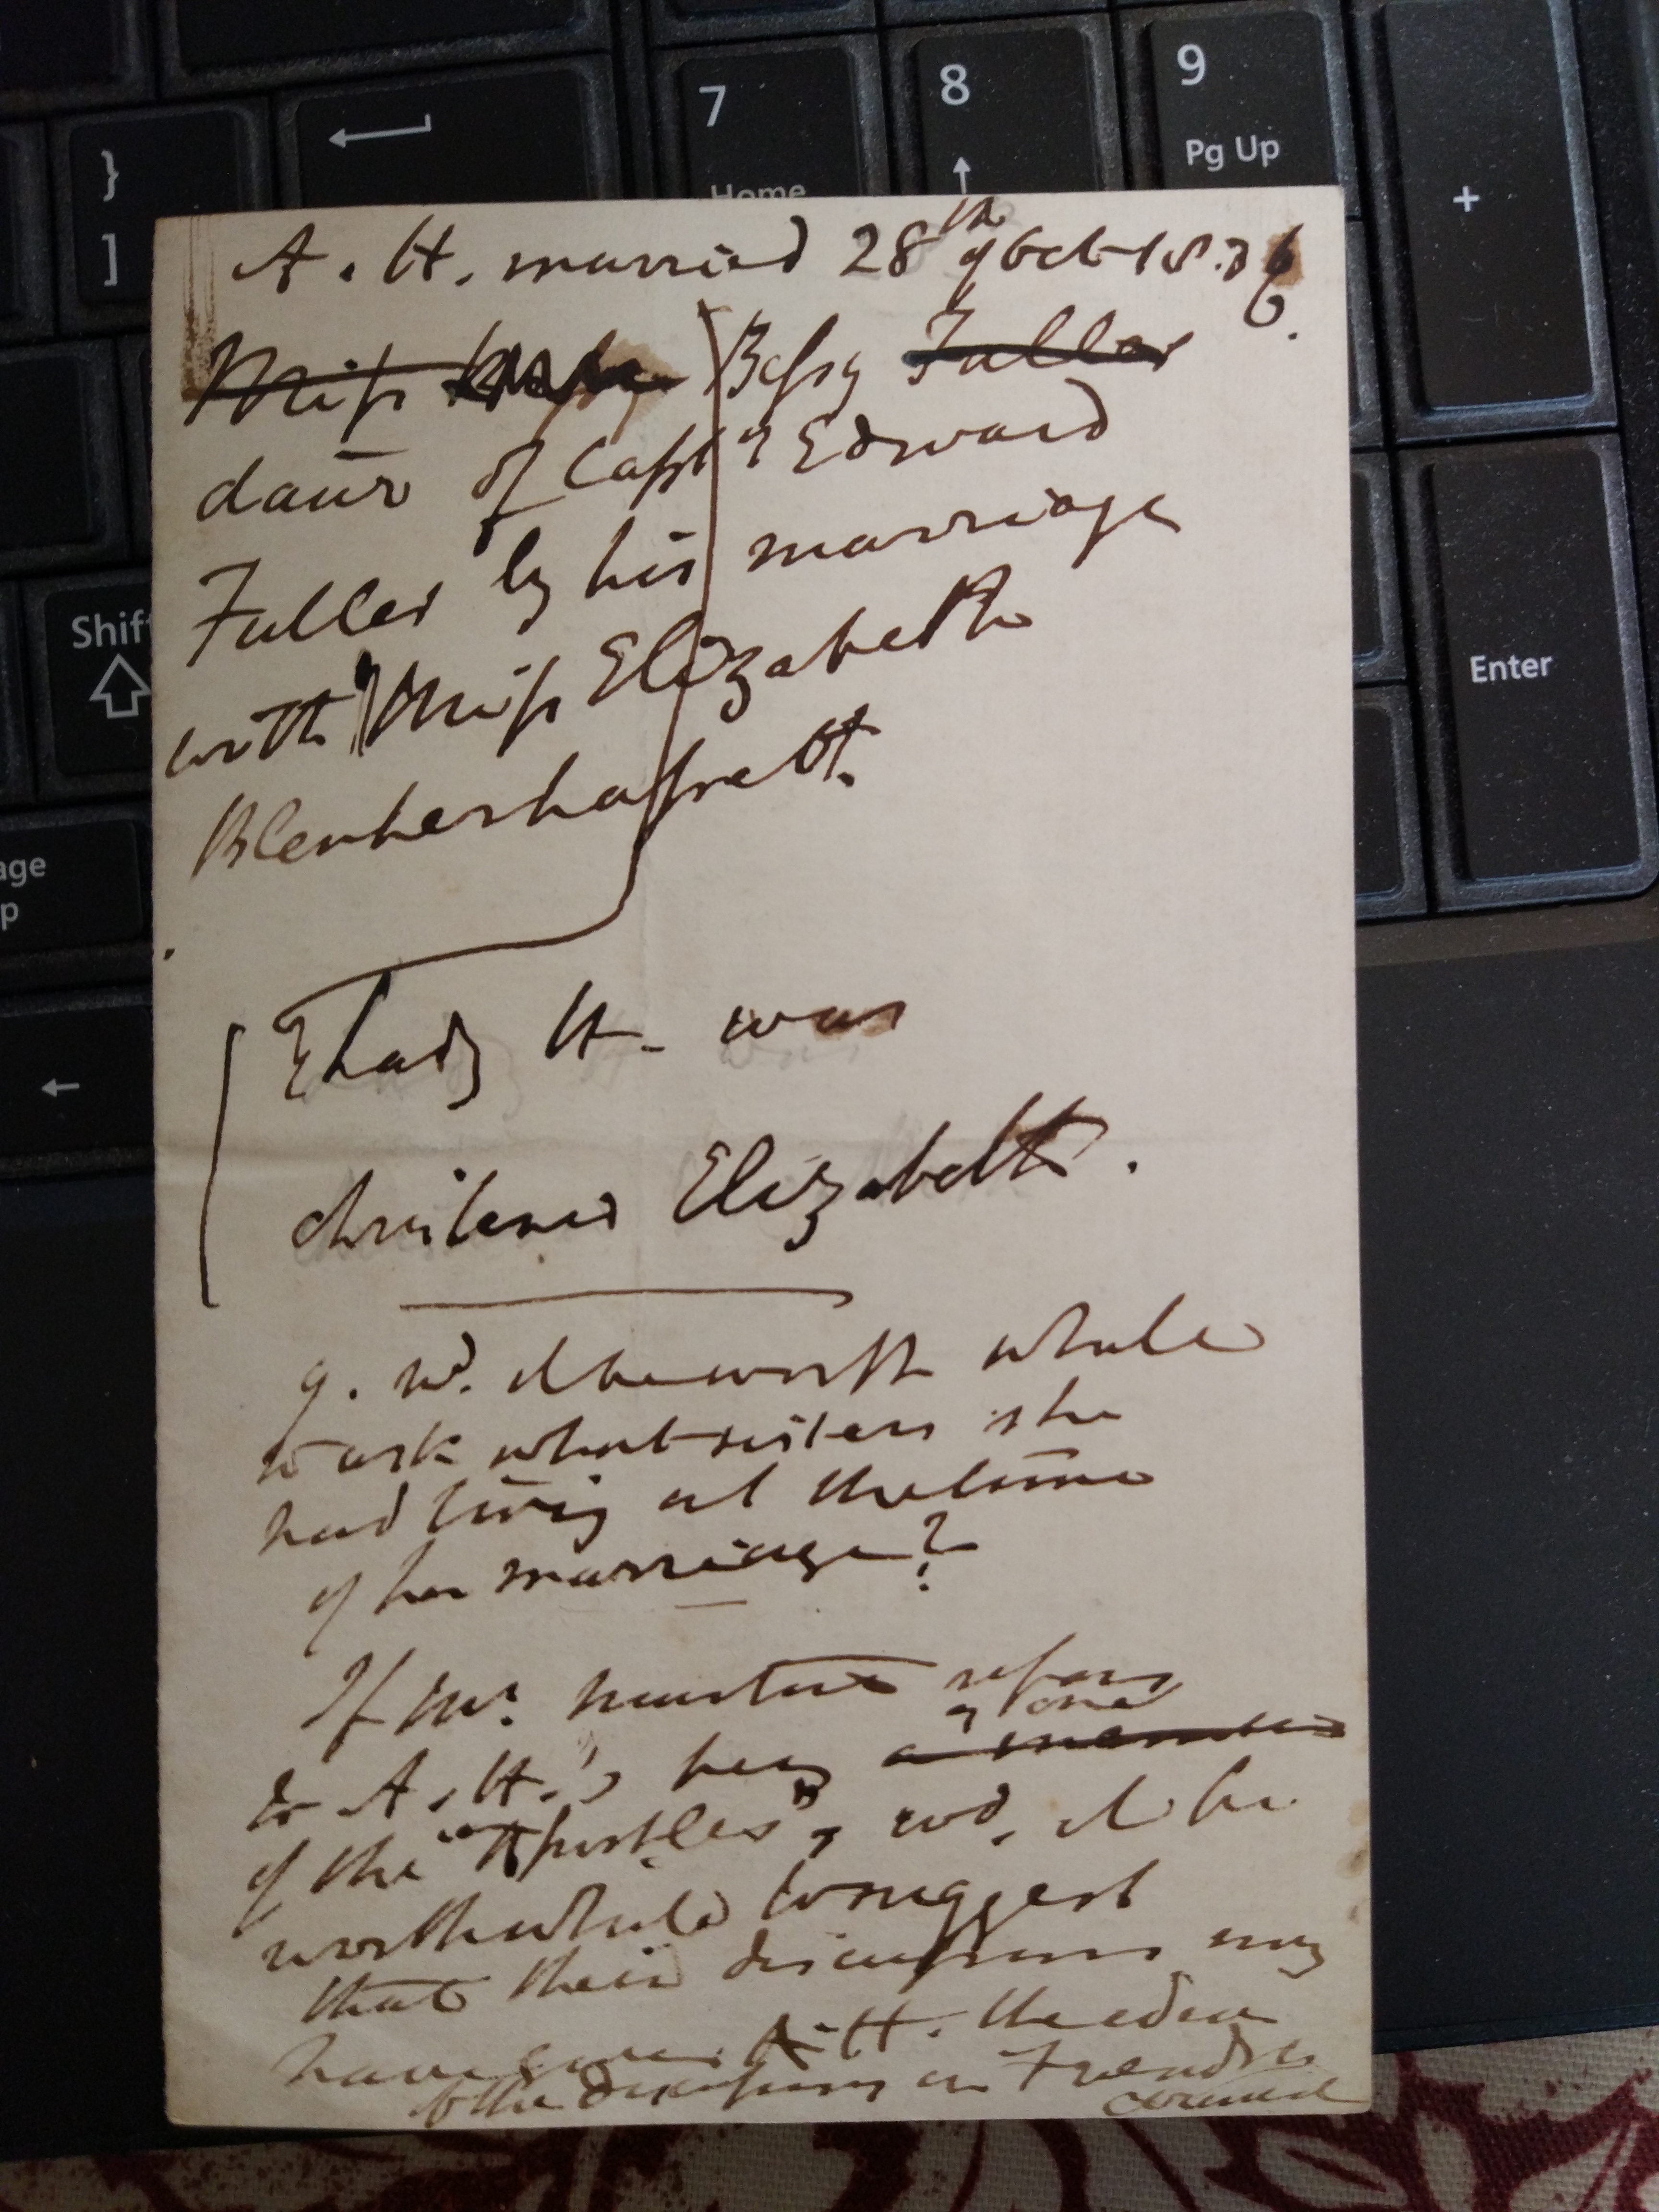 7
Home
8
9
Pg Up
+
}
]
Shift
Enter
age
p
A. H. married 28th of Oct 1836.
Miss Bessy Fuller
daur of Captn Edward
Fuller by his marriage
with Miss Elizabeth
Blenherhassett.
Lady H. was
christened Elizabeth.
q. wd. it be worth while
to ask what sisters she
had living at the time
of her marriage?
If Mr. refers
to A. H.'s being a member
of one
of the "Apostles", wd. it be
worth while to suggest
that their discussions may
have given A. H. the idea
of the discussions in Friends in
Council